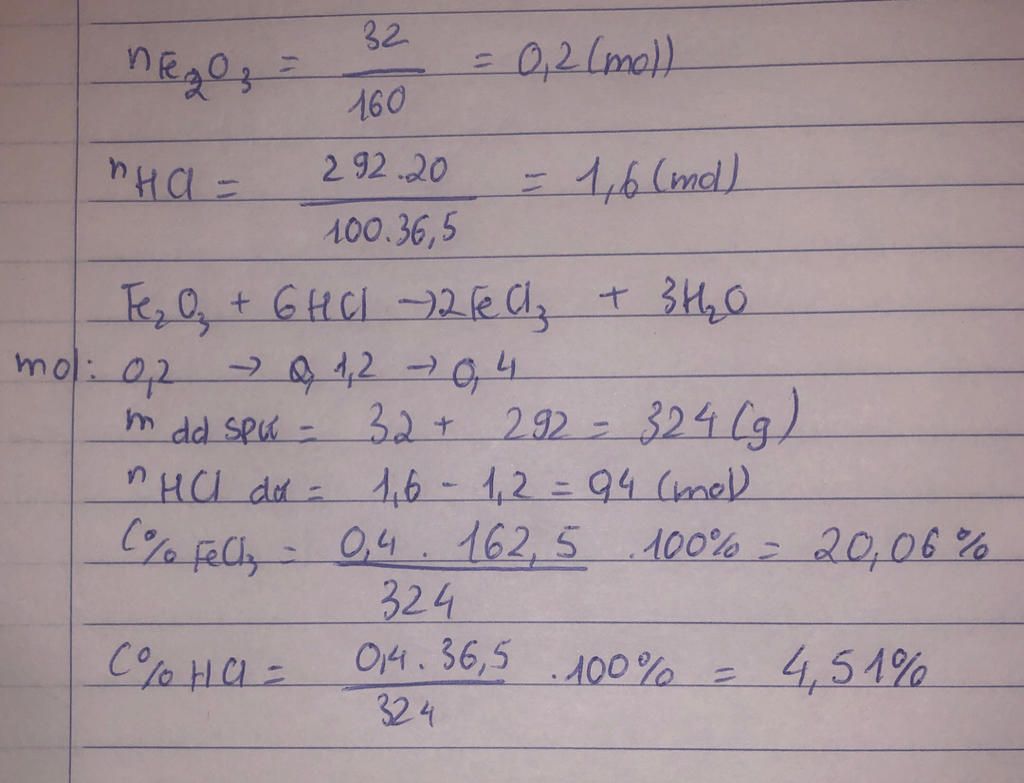 nFe₂O₃ = 32/160 = 0,2 (mol)
nHCl = 292.20/100.36,5 = 1,6 (mol)
Fe₂O₃ + 6HCl → 2FeCl₃ + 3H₂O
mol: 0,2 → 1,2 → 0,4
m dd spư = 32 + 292 = 324 (g)
nHCl dư = 1,6 - 1,2 = 0,4 (mol)
C% FeCl₃ = 0,4 . 162,5/324 .100% = 20,06%
C% HCl = 0,4 . 36,5/324 .100% = 4,51%